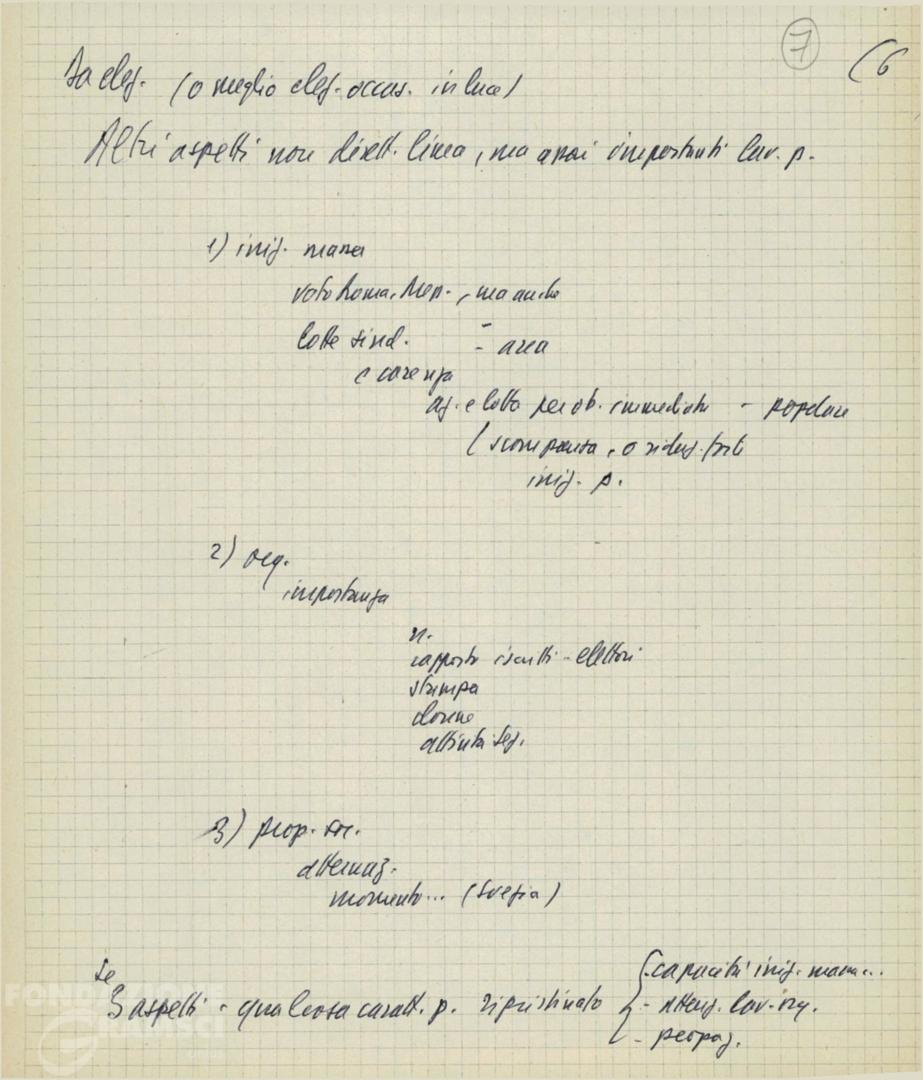 7 (6
Da elez. (o meglio elez. occas. in luce)
Altri aspetti non dirett. linea, ma assai importanti lav. p.
1) iniz. massa
voto Roma, Nap., ma anche
lotte sind. - area
carenza
az. e lotta per ob. immediati - popolare
(scomparsa, o riduz. forti
iniz. p.
2) org.
importanza
n.
rapporto iscritti - elettori
stampa
donne
attività sez.
3) prop. soc.
alternaz.
momento... (Svezia)
Se
3 aspetti - qualcosa caratt. p. ripristinato
- capacità iniz. massa...
- attenz. lav. org.
- propag.
FONDAZIONE
GRAMSCI